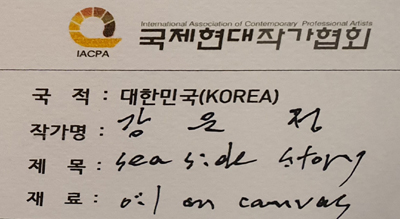 International Association of Contemporary Professional Artists
국제현대작가협회
IACPA
국 적 : 대한민국(KOREA)
작가명 : 강 은 정
제 목 : sea side story
재 료 : oil on canvas